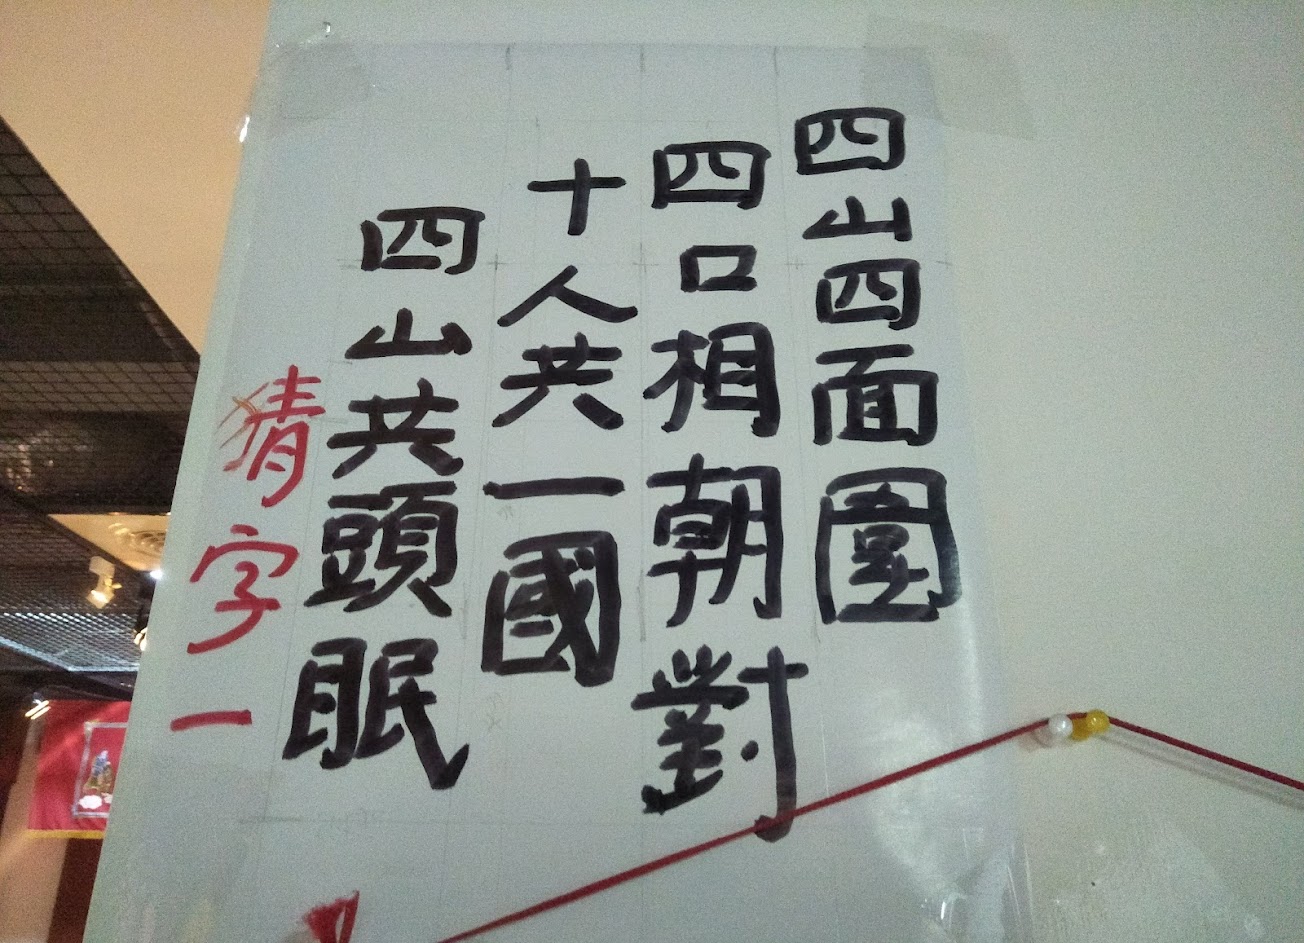 四山四面圍
四口相朝對
十人共一國
四山共頭眠
猜字一